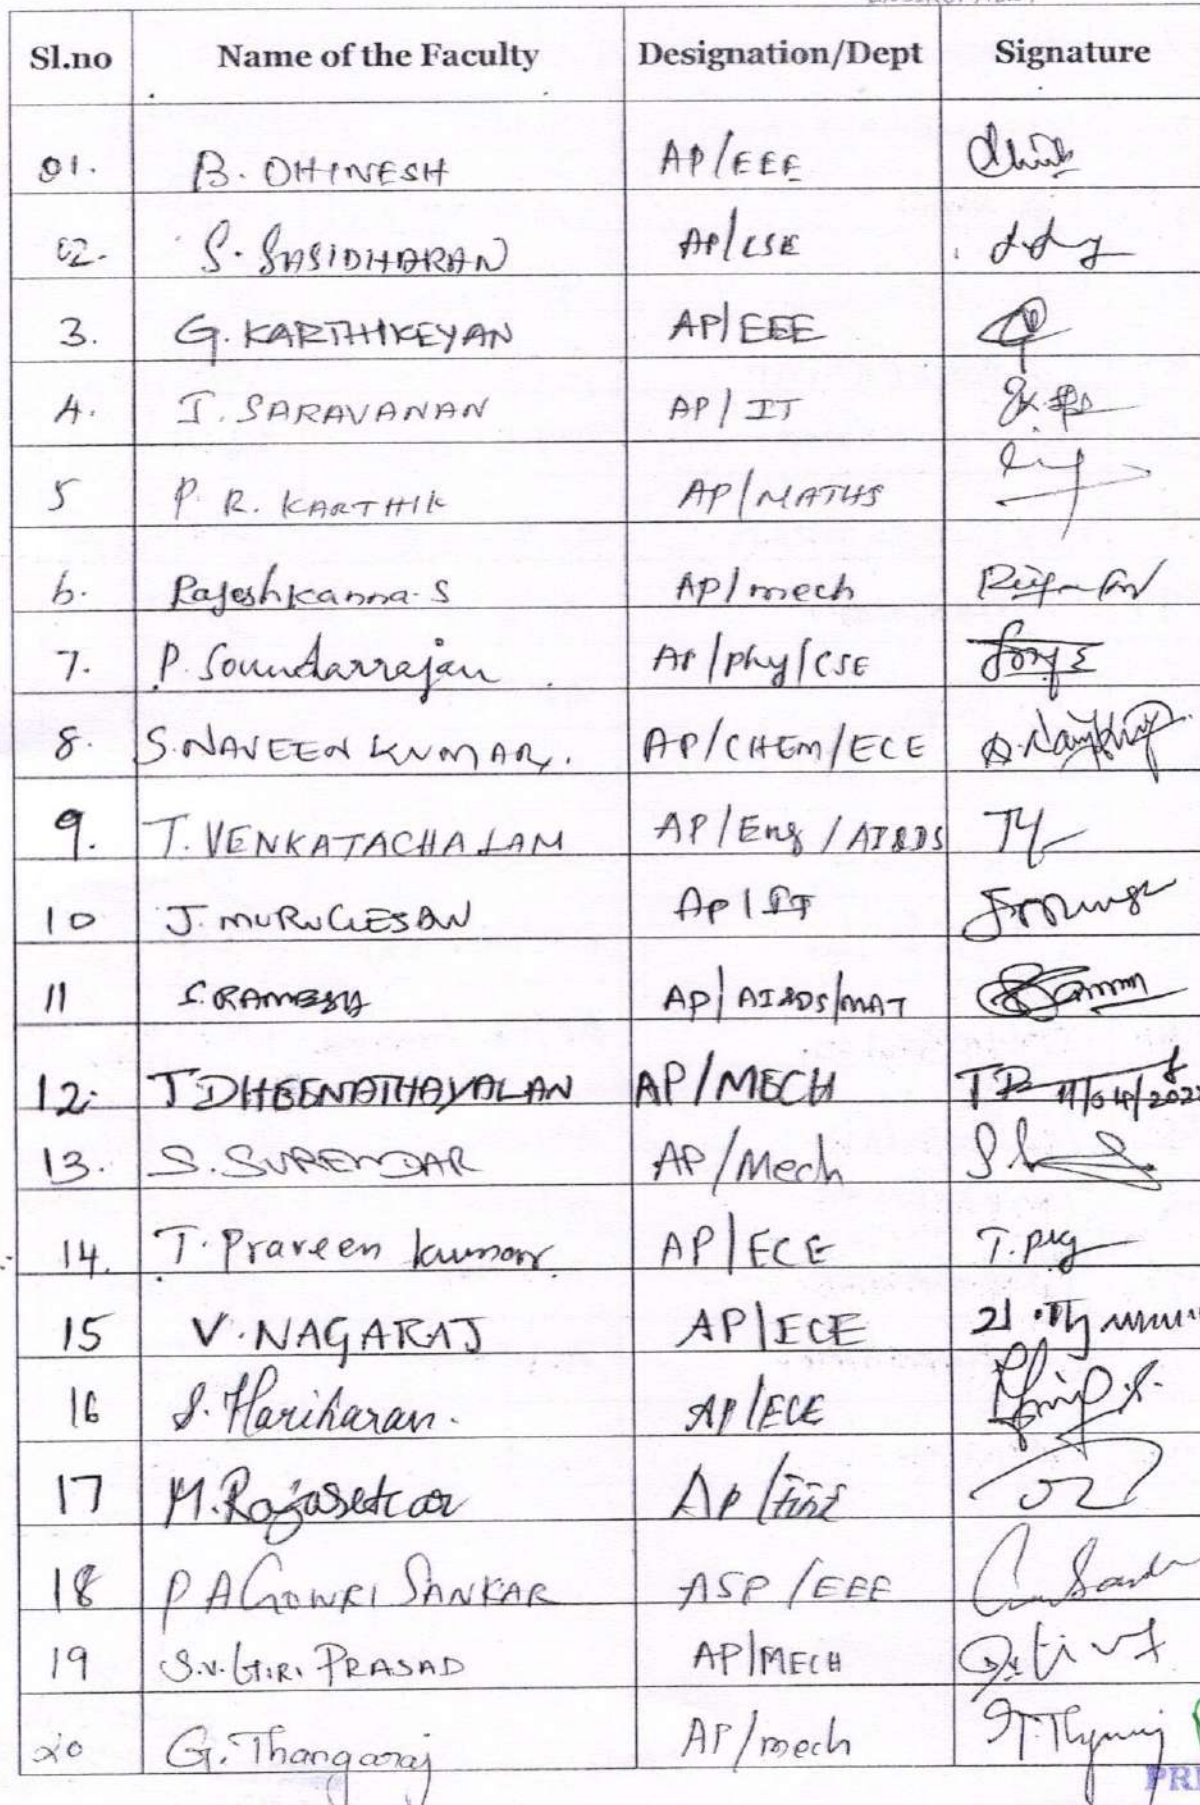 Sl.no Name of the Faculty Designation/Dept Signature
01. B. DHINESH AP/EEE
02. S. SASIDHARAN AP/CSE
3. G. KARTHIKEYAN AP/EEE
4. J. SARAVANAN AP/IT
5 P. R. KARTHIK AP/MATHS
6. Rajeshkanna.S AP/mech
7. P. Soundarrajan AP/phy/CSE
8. S.NAVEEN KUMAR. AP/CHEM/ECE
9. T. VENKATACHALAM AP/Eng/AI&DS
10 J. MURUGESAN AP/IT
11 S.RAMESH AP/AI&DS/MAT
12. T DHEENATHAYALAN AP/MECH 11/04/202
13. S. SURENDAR AP/Mech
14. T. Praveen kumar AP/ECE
15 V. NAGARAJ AP/ECE
16 S. Hariharan. AP/ECE
17 M. Rajasekar AP/
18 P A GOWRI SANKAR ASP/EEE
19 S.V. GIRI PRASAD AP/MECH
20 G. Thangaraj AP/mech
PRI